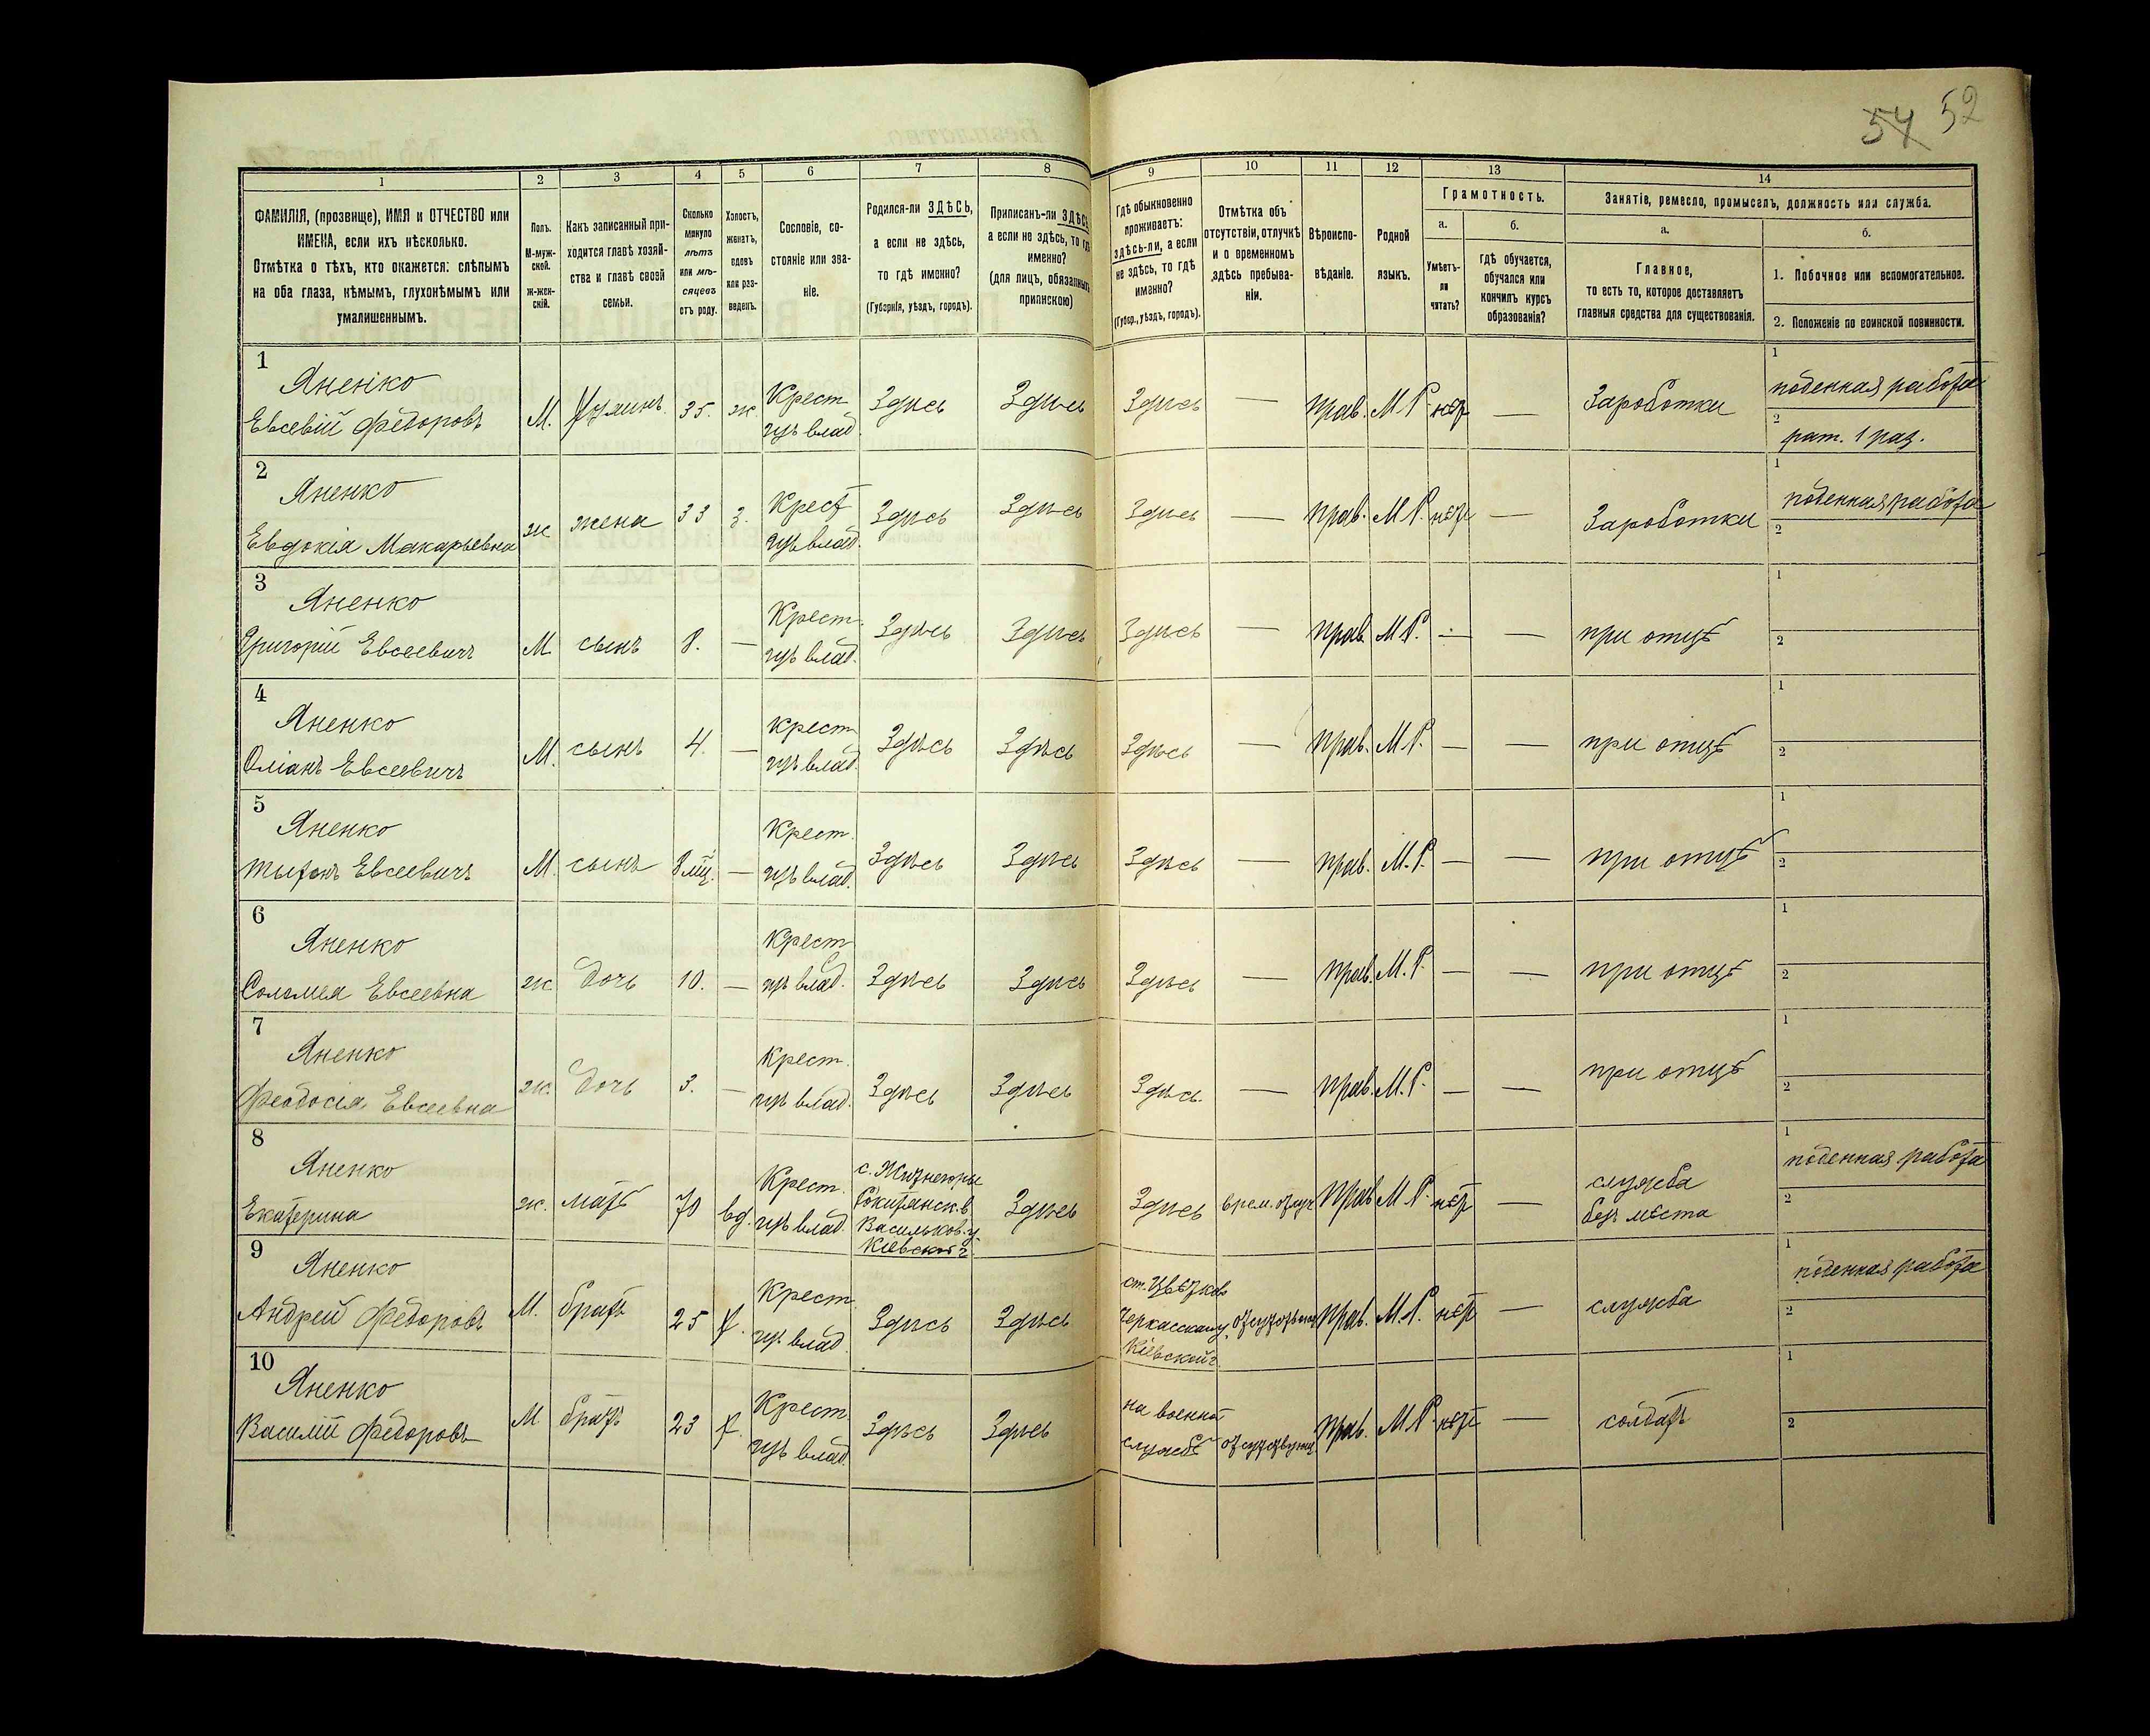 54 52
1 2 3 4 5 6 7 8 9 10 11 12 13 14
ФАМИЛІЯ, (прозвище), ИМЯ и ОТЧЕСТВО или
ИМЕНА, если ихъ нѣсколько.
Отмѣтка о тѣхъ, кто окажется: слѣпымъ
на оба глаза, нѣмымъ, глухонѣмымъ или
умалишеннымъ.
Полъ.
М-муж-
ской.
ж-жен-
скій.
Какъ записанный при-
ходится главѣ хозяй-
ства и главѣ своей
семьи.
Сколько
минуло
лѣтъ
или мѣ-
сяцевъ
отъ роду.
Холостъ,
женатъ,
вдовъ
или раз-
веденъ.
Сословіе, со-
стояніе или зва-
ніе.
Родился-ли ЗДѢСЬ,
а если не здѣсь,
то гдѣ именно?
(Губернія, уѣздъ, городъ).
Приписанъ-ли ЗДѢСЬ
а если не здѣсь, то гдѣ
именно?
(для лицъ, обязанныхъ
припискою)
Гдѣ обыкновенно
проживаетъ:
здѣсь-ли, а если
не здѣсь, то гдѣ
именно?
(Губер., уѣздъ, городъ).
Отмѣтка объ
отсутствіи, отлучкѣ
и о временномъ
здѣсь пребыва-
ніи.
Вѣроиспо-
вѣданіе.
Родной
языкъ.
Грамотность.
а.
Умѣетъ-
ли
читать?
б.
гдѣ обучается,
обучался или
кончилъ курсъ
образованія?
Занятіе, ремесло, промыселъ, должность или служба.
а.
Главное,
то есть то, которое доставляетъ
главныя средства для существованія.
б.
1. Побочное или вспомогательное.
2. Положеніе по воинской повинности.
1
Яненко
Евсевій Федоровъ М. 35. ж. Крест изъ влад. Здѣсь Здѣсь Здѣсь — прав. М Р нѣт — Заработки
1 поденная работа
2 рат. 1 раз.
2
Яненко
Евдокія Макарьевна ж жена 33 з. Крест изъ влад. Здѣсь Здѣсь Здѣсь — прав. М Р. нѣт — Заработки
1 поденная работа
2
3
Яненко
Григорій Евсеевичъ М сынъ 8. — Крест. изъ влад. Здѣсь Здѣсь Здѣсь — прав М Р. — — при отцѣ
1
2
4
Яненко
Евсеевичъ М. сынъ 4. — Крест изъ влад. Здѣсь Здѣсь Здѣсь — прав. М Р. — — при отцѣ
1
2
5
Яненко
Евсеевичъ М. сынъ 8 мѣц. — Крест. изъ влад. Здѣсь Здѣсь Здѣсь — прав. М. Р. — — при отцѣ
1
2
6
Яненко
Соломея Евсеевна ж дочь 10. — Крест изъ влад. Здѣсь Здѣсь Здѣсь — прав. М. Р. — — при отцѣ
1
2
7
Яненко
Феодосія Евсеевна ж. дочь 3. — Крест. изъ влад. Здѣсь Здѣсь Здѣсь. — прав. М. Р. — — при отцѣ
1
2
8
Яненко
Екатерина ж. мать 70 вд. Крест. изъ влад.
с.
Васильков. у.
Кіевской г.
Здѣсь Здѣсь врем. отлуч прав М Р. нѣт — служба
безъ мѣста
1 поденная работа
2
9
Яненко
Андрей Федоровъ М. братъ 25 х. Крест. изъ влад Здѣсь Здѣсь
ст. Цвѣтково
Черкасскаго у.
Кіевской г.
прав. М. Р. нѣт — служба
1 поденная работа
2
10
Яненко
Василій Федоровъ М. братъ 23 х. Крест. изъ влад. Здѣсь Здѣсь
на военной
службѣ
прав. М Р. нѣт — солдатъ
1
2